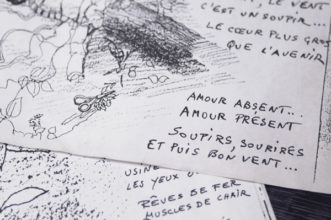 LE VENT
C'EST UN SOUPIR...
LE CŒUR PLUS GR
QUE L'AVENIR
AMOUR ABSENT...
AMOUR PRÉSENT
SOUPIRS, SOURIRES
ET PUIS BON VENT...
USINE
LES YEUX
RÊVES DE FER
MUSCLES DE CHAIR